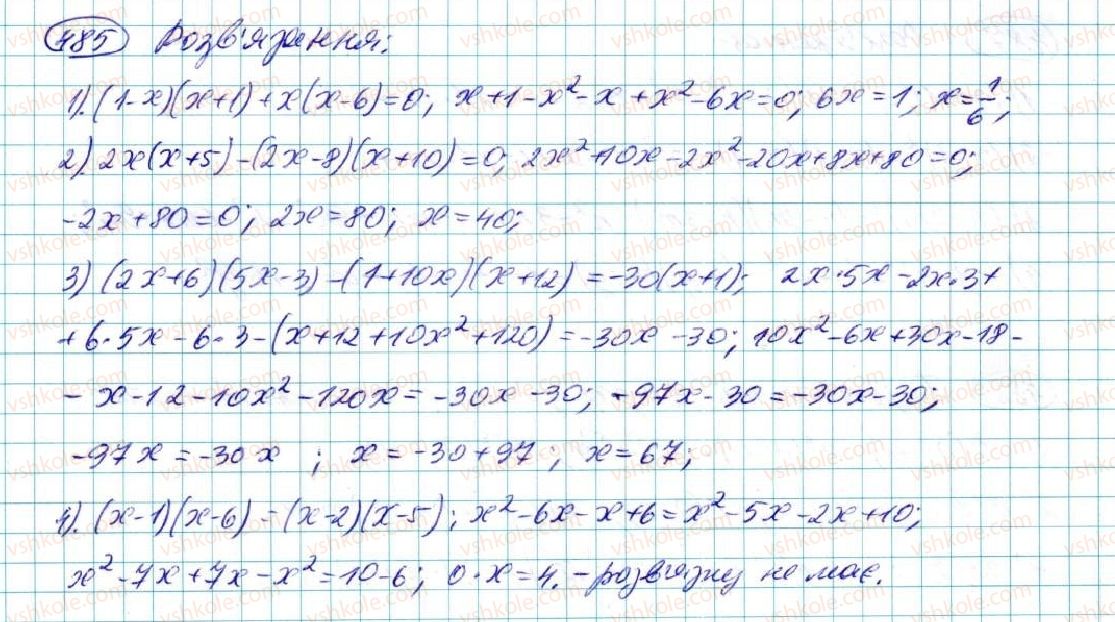 485 Розв'язання:
1). (1-x)(x+1)+x(x-6)=0; x+1-x²-x+x²-6x=0; 6x=1; x=1/6;
2) 2x(x+5)-(2x-8)(x+10)=0; 2x²+10x-2x²-20x+8x+80=0;
-2x+80=0; 2x=80; x=40;
3) (2x+6)(5x-3)-(1+10x)(x+12)=-30(x+1); 2x·5x-2x·3+
+6·5x-6·3-(x+12+10x²+120)=-30x-30; 10x²-6x+30x-18-
-x-12-10x²-120x=-30x-30; -97x-30=-30x-30;
-97x=-30x; x=-30+97; x=67;
4). (x-1)(x-6)=(x-2)(x-5); x²-6x-x+6=x²-5x-2x+10;
x²-7x+7x-x²=10-6; 0·x=4. - розв'язку не має.
vshkole.com